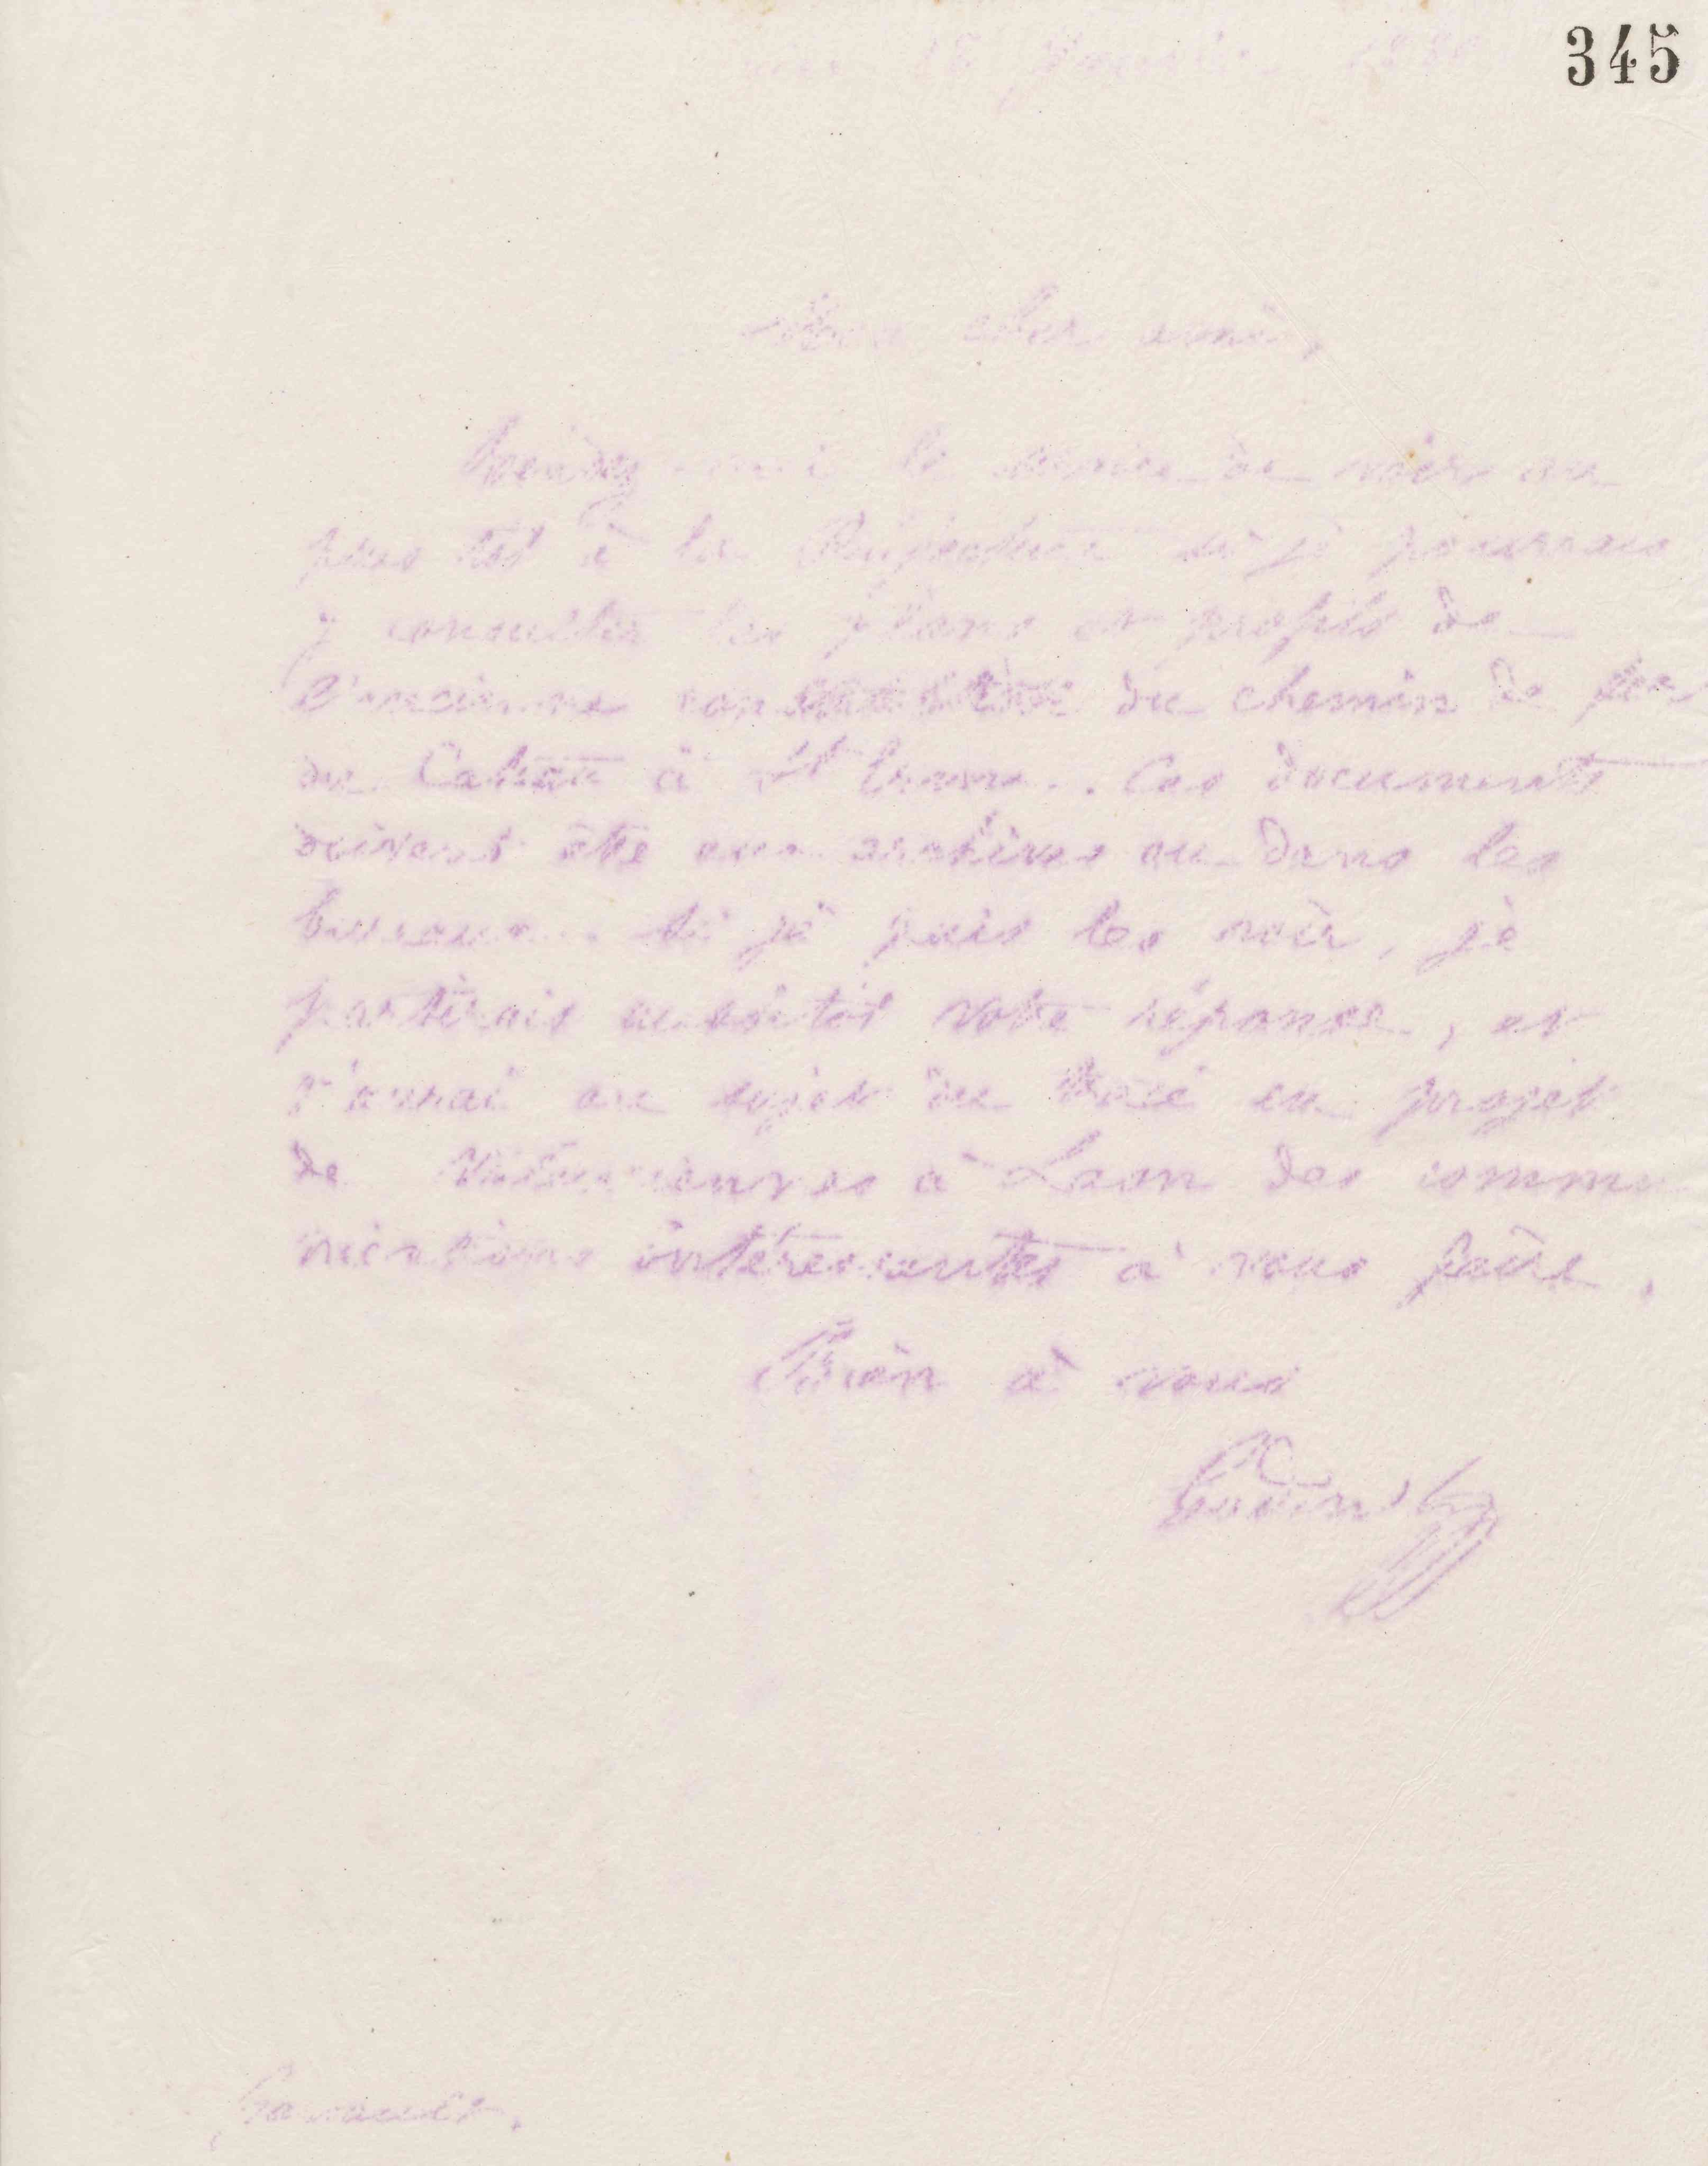 345
16 Janvier
Mon cher ami,
Rendez-moi le service de voir au
plus tôt à la Préfecture si je pourrais
y consulter les plans et profils de
l'ancienne du chemin de fer
du Cateau à St Erme. Ces documents
doivent être aux archives ou dans les
bureaux. Si je puis les voir, je
partirais aussitôt votre réponse, et
j'aurai au sujet du tracé en projet
de Valenciennes à Laon des commu
nications intéressantes à vous faire.
Bien à vous
Godin